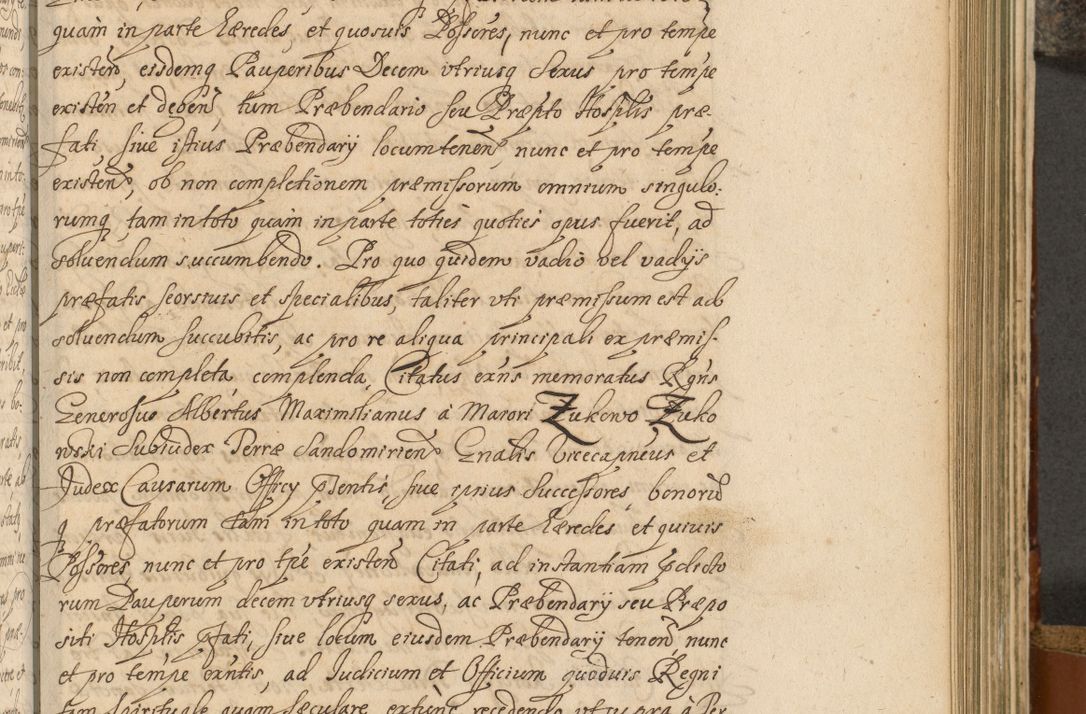 quam in parte hæredes, et quosuis Possores, nunc et pro tempe
existen, eisdemq Pauperibus Decem vtriusq Sexus pro tempe
existen et degen, tum Præbendario seu Præpto Hosplis præ-
fati siue istius Præbendarij locumtenen, nunc et pro tempe
existen, ob non completionem præmissorum omnium singulo-
rumq tam in toto quam in parte toties quoties opus fuerit, ad
soluendum succumbendo. Pro quo quidem vadio vel vadijs
præfatis seorsiuis et specialibus, taliter vti præmissum est ad
soluendum succubitis, ac pro re aliqua principali ex præmis-
sis non completa, complenda, Citatus exns memoratus Rgns
Generosus Albertus Maximilianus à Maiori Zukowo Zuko
wski Subiudex Terræ Sandomirien Gnalis Vicecapneus et
Judex Causarum Officy pntentis, siue ipsius Successores, bonorũ
q præfatorum tam in toto quam in parte hæredes et quiuis
Possores, nunc et pro tpe existen Citati, ad instantiam pdicto
rum Pauperum decem vtriusq sexus, ac Præbendarij seu Præpo
siti Hosplis pfati, siue locum eiusdem Præbendarij tenen, nunc
et pro tempe exntis, ad Iudicium et Officium quoduis Regni
tam Spirituale quam Sæculare, extunc recedendo vti supra à Ter